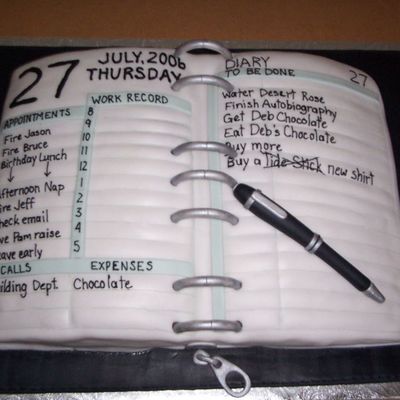 27
JULY, 2006
THURSDAY
APPOINTMENTS
Fire Jason
Fire Bruce
Birthday Lunch
fternoon Nap
ire Jeff
heck email
ve Pam raise
ave early
WORK RECORD
8
9
10
11
12
1
2
3
4
5
CALLS
ilding Dept.
EXPENSES
Chocolate
DIARY
TO BE DONE
27
Water Desert Rose
Finish Autobiography
Get Deb Chocolate
Eat Deb's Chocolate
Buy more
Buy a Tide Stick new shirt